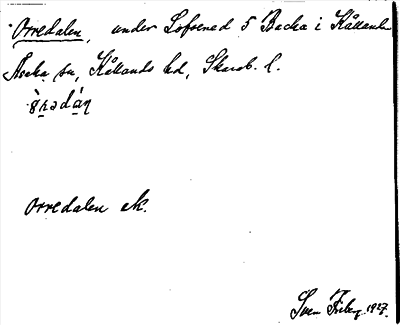 Orredalen, under Lofsened 5 Backa i Kållands
Åsaka sn, Kållands hd, Skarab. l.
Orredalen ek.
Sven Friberg. 1927.